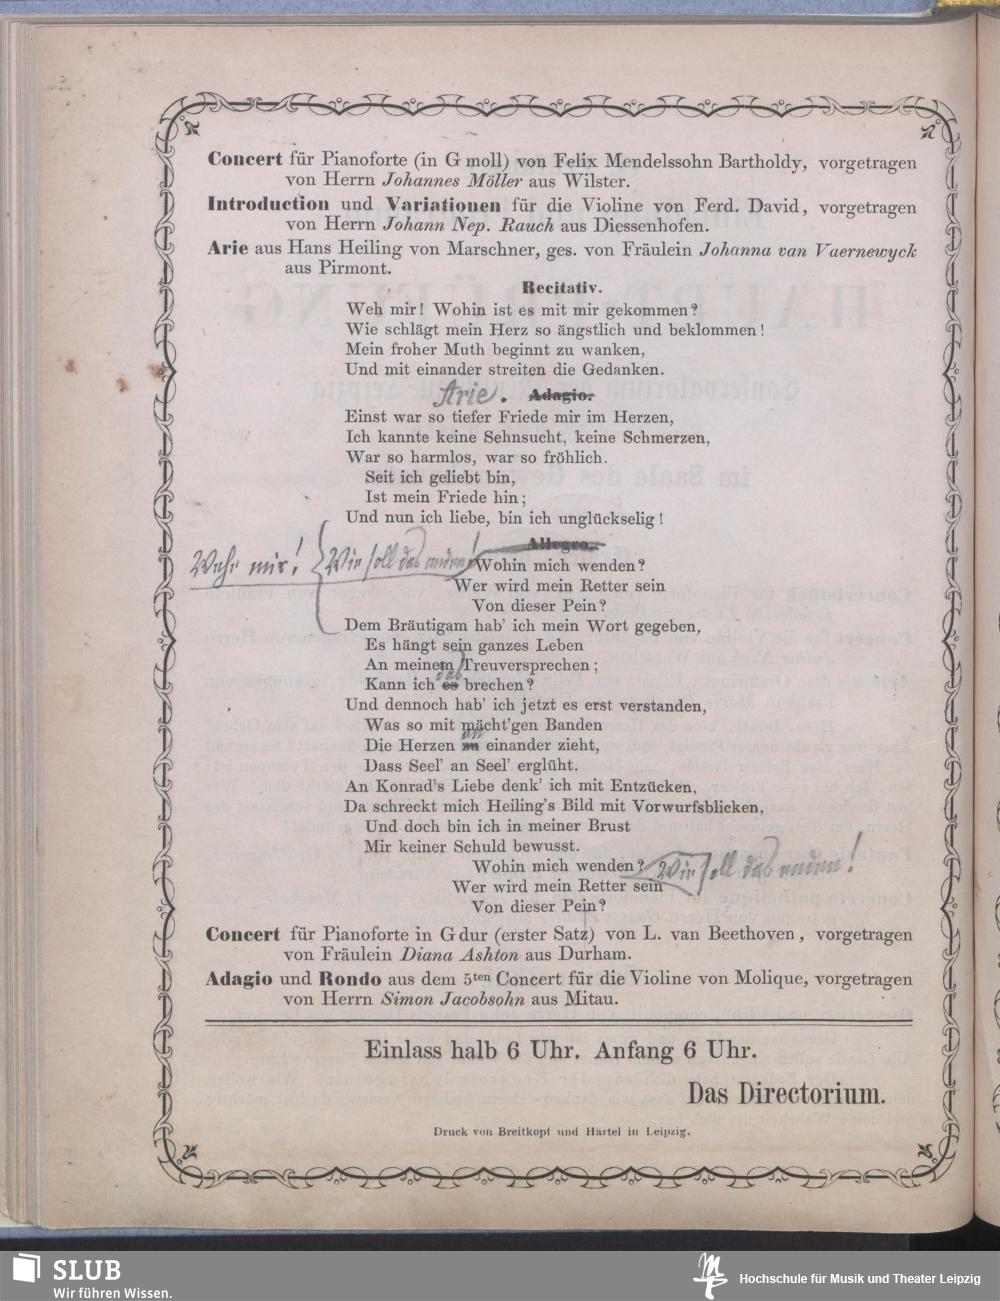 Concert für Pianoforte (in G moll) von Felix Mendelssohn Bartholdy, vorgetragen
von Herrn Johannes Möller aus Wilster.
Introduction und Variationen für die Violine von Ferd. David, vorgetragen
von Herrn Johann Nep. Rauch aus Diessenhofen.
Arie aus Hans Heiling von Marschner, ges. von Fräulein Johanna van Vaernewyck
aus Pirmont.
Recitativ.
Weh mir! Wohin ist es mit mir gekommen?
Wie schlägt mein Herz so ängstlich und beklommen!
Mein froher Muth beginnt zu wanken,
Und mit einander streiten die Gedanken.
Arie. Adagio.
Einst war so tiefer Friede mir im Herzen,
Ich kannte keine Sehnsucht, keine Schmerzen,
War so harmlos, war so fröhlich.
Seit ich geliebt bin,
Ist mein Friede hin;
Und nun ich liebe, bin ich unglückselig!
Allegro.
Wehe mir! Wie soll das enden! Wohin mich wenden?
Wer wird mein Retter sein
Von dieser Pein?
Dem Bräutigam hab' ich mein Wort gegeben,
Es hängt sein ganzes Leben
An meinem Treuversprechen;
das
Kann ich es brechen?
Und dennoch hab' ich jetzt es erst verstanden,
Was so mit mächt'gen Banden
an
Die Herzen zu einander zieht,
Dass Seel' an Seel' erglüht.
An Konrad's Liebe denk' ich mit Entzücken,
Da schreckt mich Heiling's Bild mit Vorwurfsblicken,
Und doch bin ich in meiner Brust
Mir keiner Schuld bewusst.
Wohin mich wenden? Wie soll das enden!
Wer wird mein Retter sein
Von dieser Pein?
Concert für Pianoforte in G dur (erster Satz) von L. van Beethoven, vorgetragen
von Fräulein Diana Ashton aus Durham.
Adagio und Rondo aus dem 5ten Concert für die Violine von Molique, vorgetragen
von Herrn Simon Jacobsohn aus Mitau.
Einlass halb 6 Uhr. Anfang 6 Uhr.
Das Directorium.
Druck von Breitkopf und Härtel in Leipzig.
SLUB
Wir führen Wissen.
Hochschule für Musik und Theater Leipzig